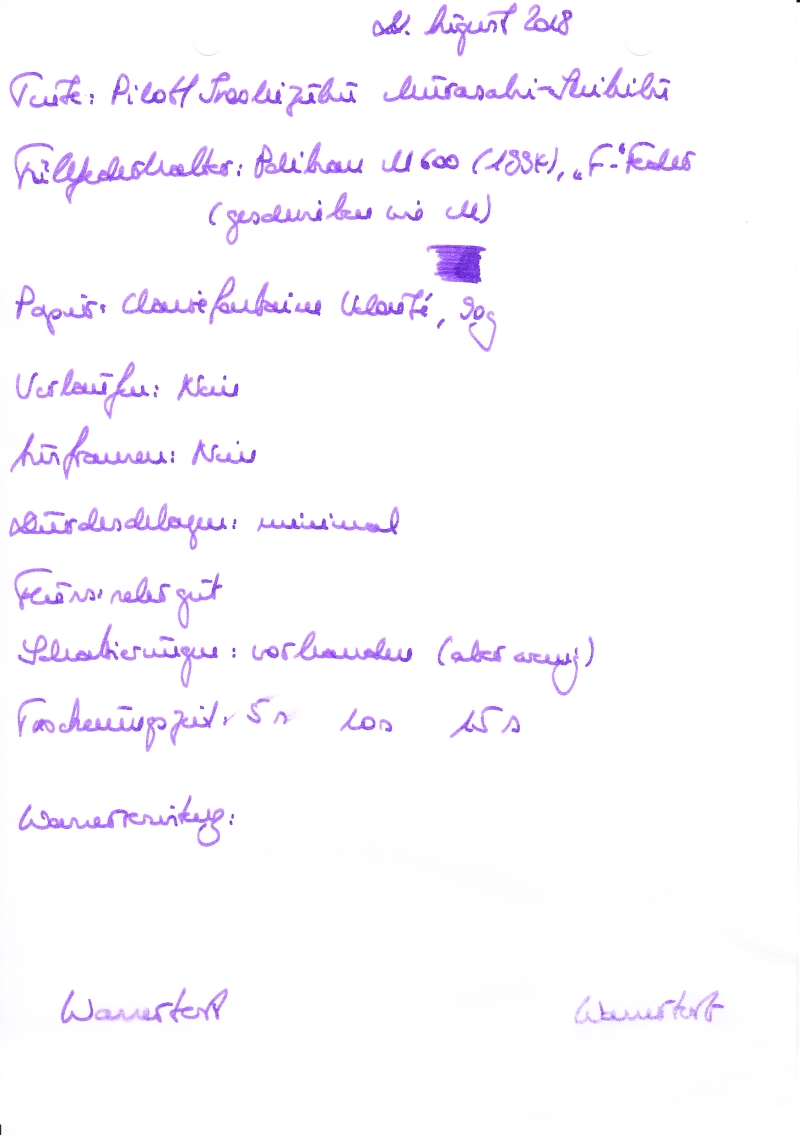 21. August 2018
Tinte: Pilot Iroshizuku Murasaki-Shikibu
Füllfederhalter: Pelikan M 600 (1997), „F-“Feder
(geschrieben wie M)
Papier: Clairefontaine Velouté, 90g
Verlaufen: Nein
Ausfransen: Nein
Durchschlagen: minimal
Fluss: sehr gut
Schattierungen: vorhanden (aber wenig)
Trocknungszeit: 5 s 10 s 15 s
Wasserfestigkeit:
Wassertest Wassertest